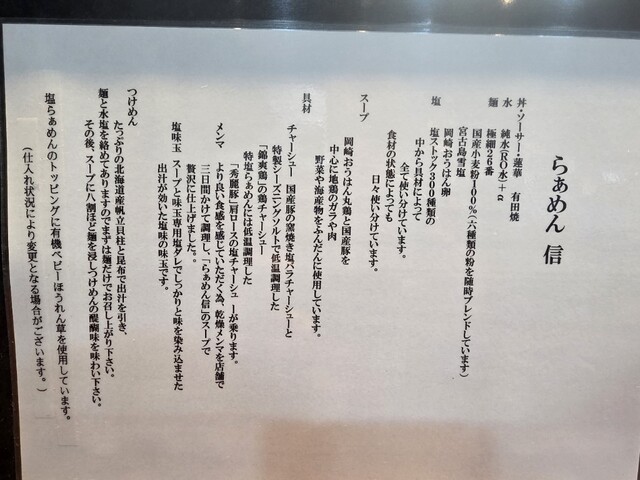 らぁめん 信
丼・ソーサー・蓮華 有田焼
水 純水(RO水)+α
麺 極細26番
国産小麦粉100%(六種類の粉を随時ブレンドしています)
岡崎おうはん卵
宮古島雪塩
塩 塩ストック300種類の
中から具材によって
全て使い分けています。
食材の状態によっても
日々使い分けています。
スープ
岡崎おうはん丸鶏と国産豚を
中心に地鶏のガラや肉
野菜や海産物をふんだんに使用しています。
具材
チャーシュー 国産豚の窯焼き塩バラチャーシューと
特製シーズニングソルトで低温調理した
「錦爽鶏」の鶏チャーシュー
特塩らぁめんには低温調理した
「秀麗豚」肩ロースの塩チャーシューが乗ります。
メンマ より良い食感を感じていただく為、乾燥メンマを店舗で
三日間かけて調理し、「らぁめん信」のスープで
贅沢に仕上げました。
塩味玉 スープと味玉専用塩ダレでしっかりと味を染み込ませた
出汁が効いた塩味の味玉です。
つけめん
たっぷりの北海道産帆立貝柱と昆布で出汁を引き、
麺と水塩を絡めてありますのでまずは麺だけでお召し上がり下さい。
その後、スープに八割ほど麺を浸しつけめんの醍醐味を味わい下さい。
塩らぁめんのトッピングに有機ベビーほうれん草を使用しています。
(仕入れ状況により変更となる場合がございます。)